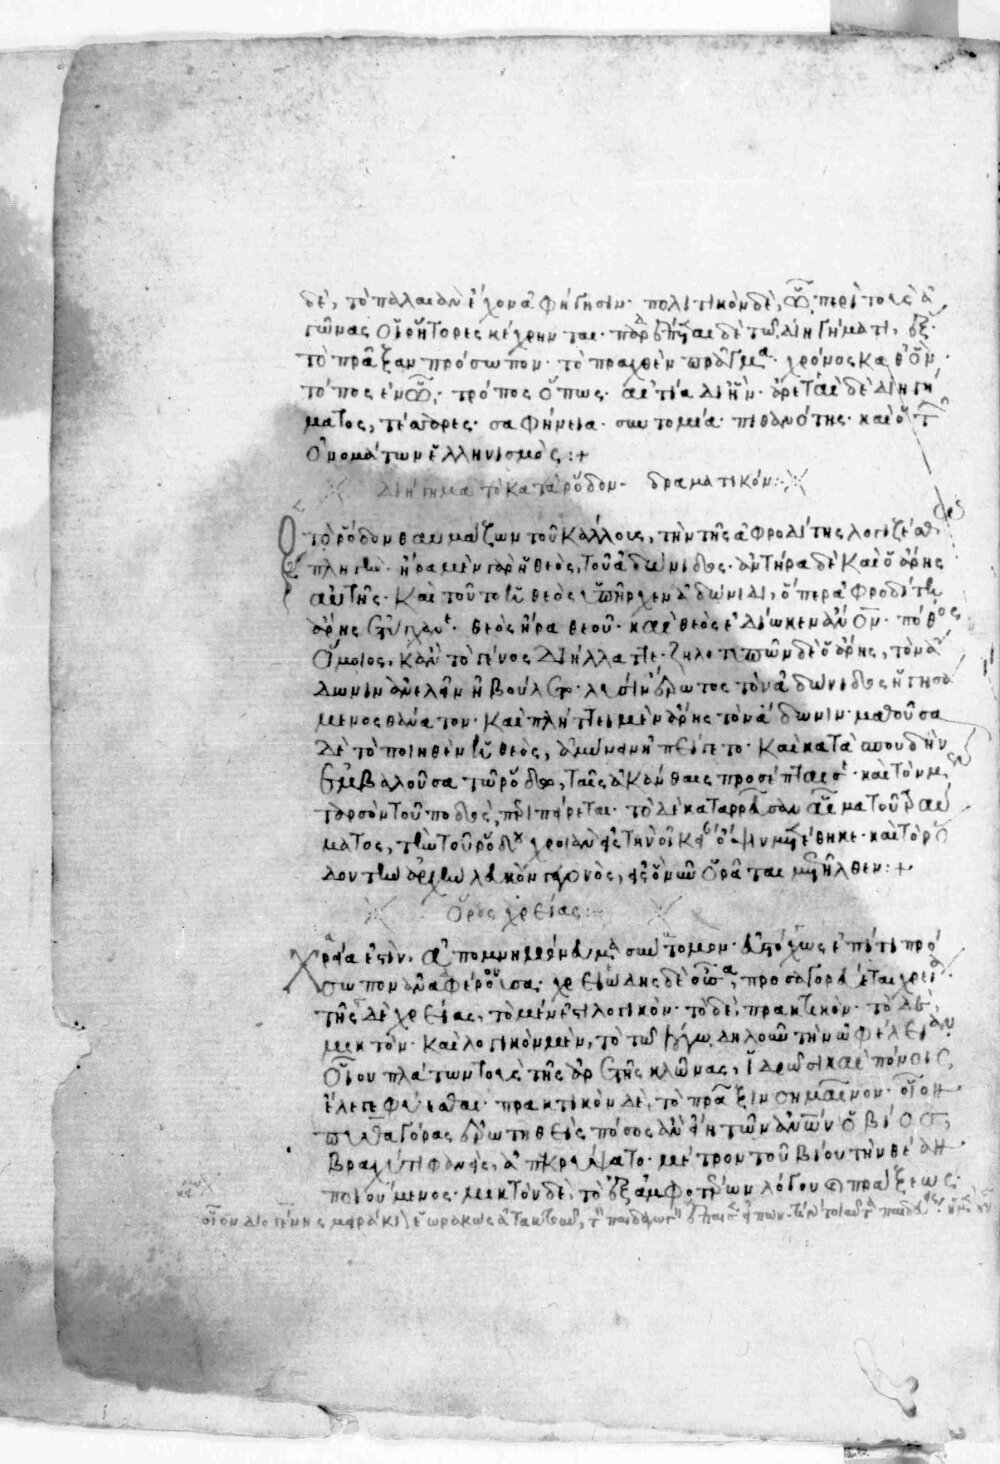 δέ, τὸ παλαιὰν ἔχον ἀφήγησιν· πολιτικὸν δέ, ᾧ περὶ τοὺς ἀ
γῶνας οἱ ῥήτορες κέχρηνται· παρέπεται δὲ τῷ διηγήματι, ἕξ·
τὸ πρᾶξαν πρόσωπον· τὸ πραχθὲν πρᾶγμα· χρόνος καθ' ὅν·
τόπος ἐν ᾧ· τρόπος ὅπως· αἰτία δι' ἥν· ἀρεταὶ δὲ διηγή
ματος, τέσσαρες· σαφήνεια· συντομία· πιθανότης· καὶ ὁ τῶν
ὀνομάτων ἑλληνισμός:+
διήγημα τὸ κατὰ ῥόδον· δραματικόν:
Ὁ τὸ ῥόδον θαυμάζων τοῦ κάλλους, τὴν τῆς ἀφροδίτης λογιζέσθω
πληγήν· ἤρα μὲν γὰρ ἡ θεὸς, τοῦ ἀδώνιδος· ἀντήρα δὲ καὶ ὁ ἄρης
αὐτῆς· καὶ τοῦτο ἡ θεὸς ὑπῆρχεν ἀδώνιδι, ὅπερ ἀφροδίτῃ
ἄρης ἐτύγχανε· θεὸς ἤρα θεοῦ· καὶ θεὸς ἐδίωκεν ἄνον· πόθος
ὅμοιος, κἂν τὸ γένος διήλλαττε· ζηλοτυπῶν δὲ ὁ ἄρης, τὸν ἄ
δωνιν ἀνελεῖν ἠβούλετο· λύσιν ἔρωτος τὸν ἀδώνιδος ἡγησά
μενος θάνατον· καὶ πλήττει μὲν ἄρης τὸν ἄδωνιν· μαθοῦσα
δὲ τὸ ποιηθὲν ἡ θεὸς, ἀμύνειν ἠπείγετο· καὶ κατὰ σπουδὴν
ἐμβαλοῦσα τῷ ῥόδῳ, ταῖς ἀκάνθαις προσέπταισε· καὶ τὸν μὲν
ταρσὸν τοῦ ποδὸς, περιπείρεται· τὸ δὲ καταρρεῦσαν αἷμα τοῦ τραύ
ματος, τὴν τοῦ ῥόδου χροιὰν εἰς τὴν οἰκείαν ὄψιν μετέθηκε· καὶ τὸ ῥό
δον τὴν ἀρχὴν λευκὸν γεγονὸς, εἰς ὃ νῦν ὁρᾶται μετῆλθεν:+
ὅρος χρείας:
Χρεία ἐστὶν, ἀπομνημόνευμα σύντομον· εὐστόχως ἐπί τι πρό
σωπον ἀναφέρουσα· χρειώδης δὲ οὖσα, προσαγορεύεται χρεία·
τῆς δὲ χρείας, τὸ μέν ἐστι λογικόν· τὸ δὲ, πρακτικόν· τὸ δὲ,
μικτόν· καὶ λογικὸν μὲν, τὸ τῷ λόγῳ δηλοῦν τὴν ὠφέλειαν·
οἷον πλάτων τοὺς τῆς ἀρετῆς κλῶνας, ἱδρῶσι καὶ πόνοις
ἔλεγε φύεσθαι· πρακτικὸν δὲ, τὸ πρᾶξιν σημαῖνον· οἷον
πυθαγόρας ἐρωτηθεὶς πόσος ἂν εἴη τῶν ἀνων ὁ βίος,
βραχύ τι φανεὶς, ἀπεκρύψατο· μέτρον τοῦ βίου τὴν θέαν
ποιούμενος· μικτὸν δὲ, τὸ ἐξ ἀμφοτέρων λόγου καὶ πράξεως·
οἷον διογένης μειράκιον ἑωρακὼς ἀτακτοῦν, τὸν παιδαγωγὸν ἔπαισεν εἰπών· τί γὰρ τοιαῦτα παιδεύεις·